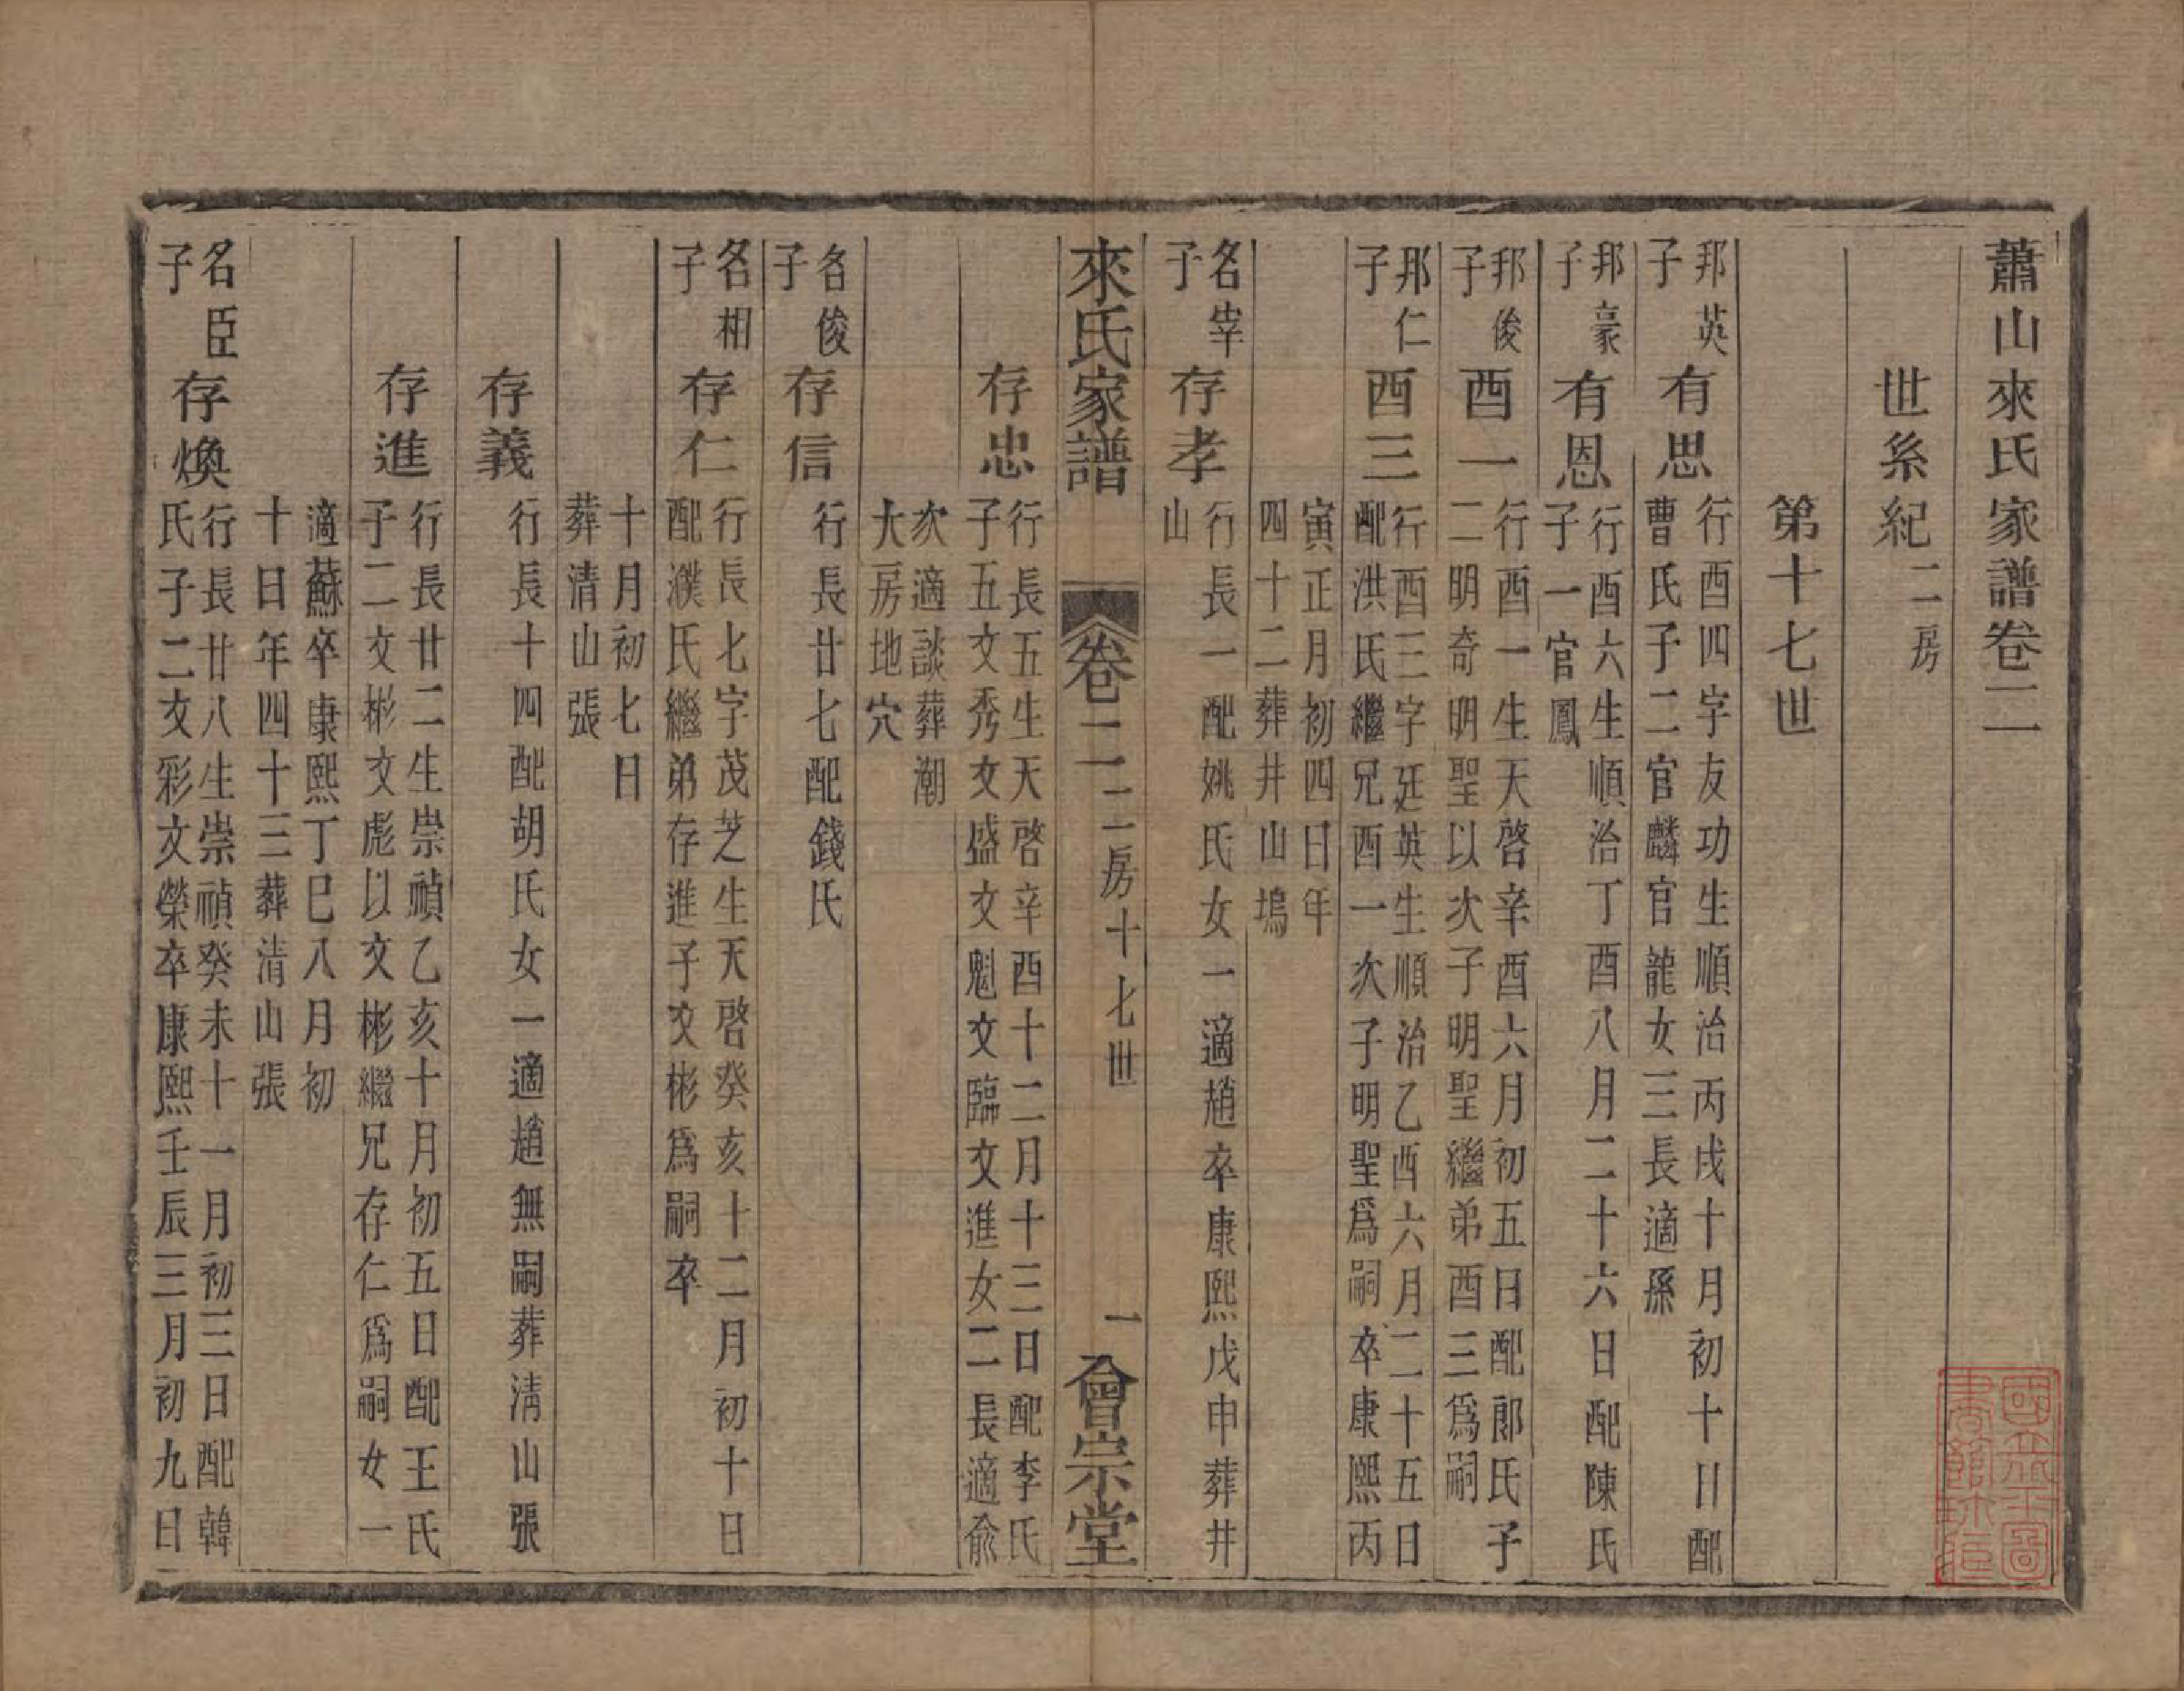 蕭山來氏家譜卷二
世系紀二房
第十七世
邦英子
有思
行酉四字友功生順治丙戌十月初十日配
曹氏子二官麟官龍女三長適孫
邦豪子
有恩
行酉六生順治丁酉八月二十六日配陳氏
子一官鳳
邦俊子
酉一
行酉一生天啓辛酉六月初五日配郎氏子
二明奇明聖以次子明聖繼弟酉三爲嗣
邦仁子
酉三
行酉三字廷英生順治乙酉六月二十五日
配洪氏繼兄酉一次子明聖爲嗣卒康熙丙
寅正月初四日年
四十二葬井山塢
名宰子
存孝
行長一配姚氏女一適趙卒康熙戊申葬井
山
來氏家譜
卷二
二房十七世
一
會宗堂
存忠
行長五生天啓辛酉十二月十三日配李氏
子五文秀文盛文魁文臨文進女二長適俞
次適談葬潮
大房地穴
名俊子
存信
行長廿七配錢氏
名相子
存仁
行長七字茂芝生天啓癸亥十二月初十日
配濮氏繼弟存進子文彬爲嗣卒
十月初七日
葬清山張
存義
行長十四配胡氏女一適趙無嗣葬清山張
存進
行長廿二生崇禎乙亥十月初五日配王氏
子二文彬文彪以文彬繼兄存仁爲嗣女一
適蘇卒康熙丁巳八月初
十日年四十三葬清山張
名臣子
存煥
行長廿八生崇禎癸未十一月初三日配韓
氏子二文彩文榮卒康熙壬辰三月初九日